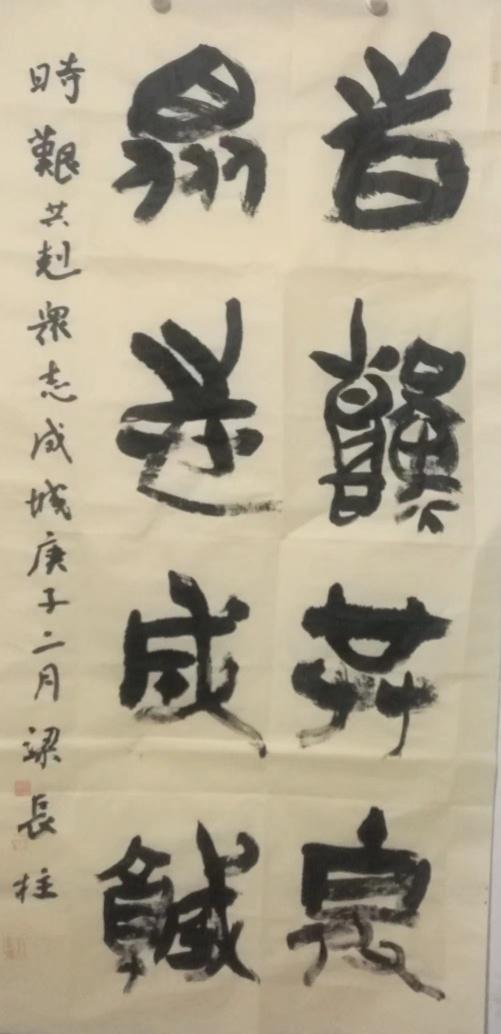 時艱共剋
衆志成城
時艱共剋衆志成城庚子二月梁長柱